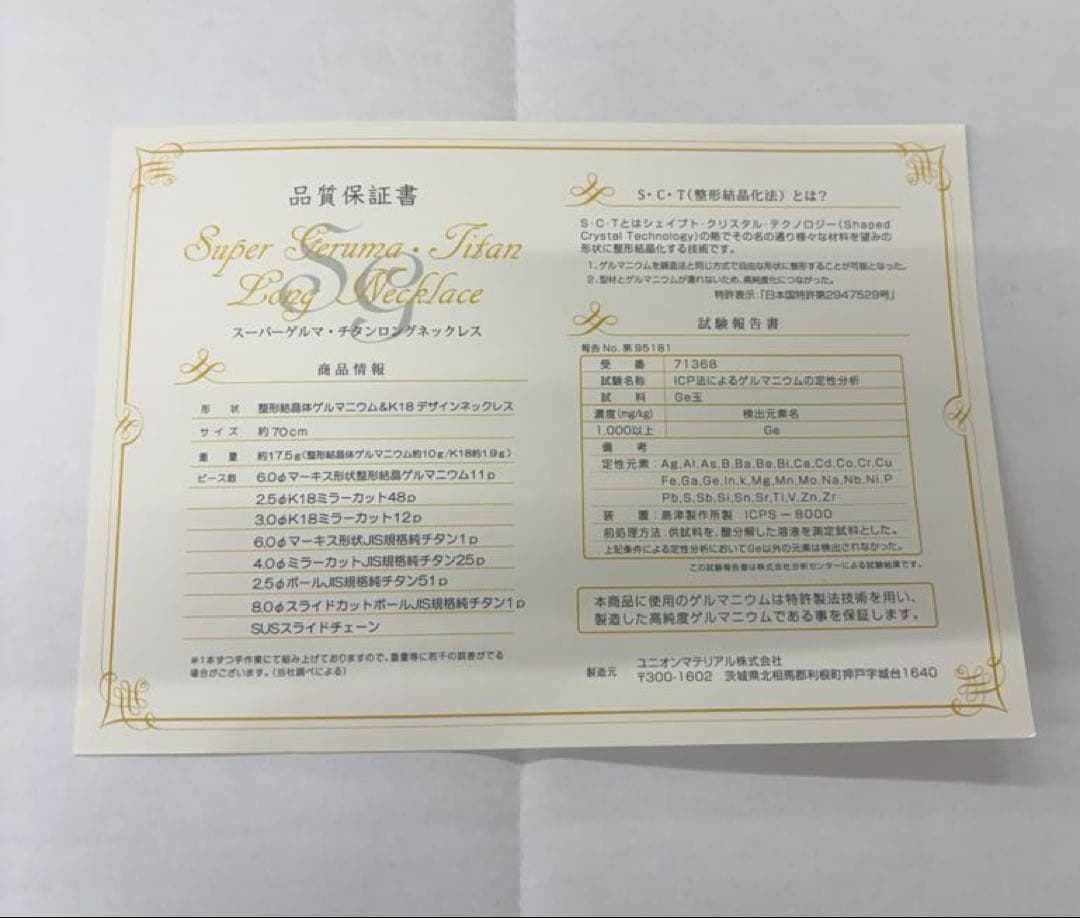 品質保証書
SG
Super Geruma・Titan
Long Necklace
スーパーゲルマ・チタンロングネックレス
商品情報
形状 整形結晶体ゲルマニウム&K18デザインネックレス
サイズ 約70cm
重量 約17.5g(整形結晶体ゲルマニウム約10g/K18約1.9g)
ピース数 6.0φマーキス形状整形結晶ゲルマニウム11p
2.5φK18ミラーカット48p
3.0φK18ミラーカット12p
6.0φマーキス形状JIS規格純チタン1p
4.0φミラーカットJIS規格純チタン25p
2.5φボールJIS規格純チタン51p
8.0φスライドカットボールJIS規格純チタン1p
SUSスライドチェーン
※1本ずつ手作業にて組み上げておりますので、重量等に若干の誤差がでる
場合がございます。(当社調べによる)
S・C・T(整形結晶化法)とは?
S・C・Tとはシェイプト・クリスタル・テクノロジー(Shaped
Crystal Technology)の略でその名の通り様々な材料を望みの
形状に整形結晶化する技術です。
1、ゲルマニウムを鋳造法と同じ方式で自由な形状に整形することが可能となった。
2、型材とゲルマニウムが濡れないため、高純度化につながった。
特許表示:「日本国特許第2947529号」
試験報告書
報告No. 第95181
受番 71368
試験名称 ICP法によるゲルマニウムの定性分析
試料 Ge玉
濃度(mg/kg) 検出元素名
1,000以上 Ge
備考
定性元素:Ag,Al,As,B,Ba,Be,Bi,Ca,Cd,Co,Cr,Cu
Fe,Ga,Ge,In,k,Mg,Mn,Mo,Na,Nb,Ni,P
Pb,S,Sb,Si,Sn,Sr,Ti,V,Zn,Zr
装置:島津製作所製 ICPS-8000
前処理方法:供試料を、酸分解した溶液を測定試料とした。
上記条件による定性分析においてGe以外の元素は検出されなかった。
この試験報告書は株式会社分析センターによる試験結果です。
本商品に使用のゲルマニウムは特許製法技術を用い、
製造した高純度ゲルマニウムである事を保証します。
製造元 ユニオンマテリアル株式会社
〒300-1602 茨城県北相馬郡利根町押戸字城台1640